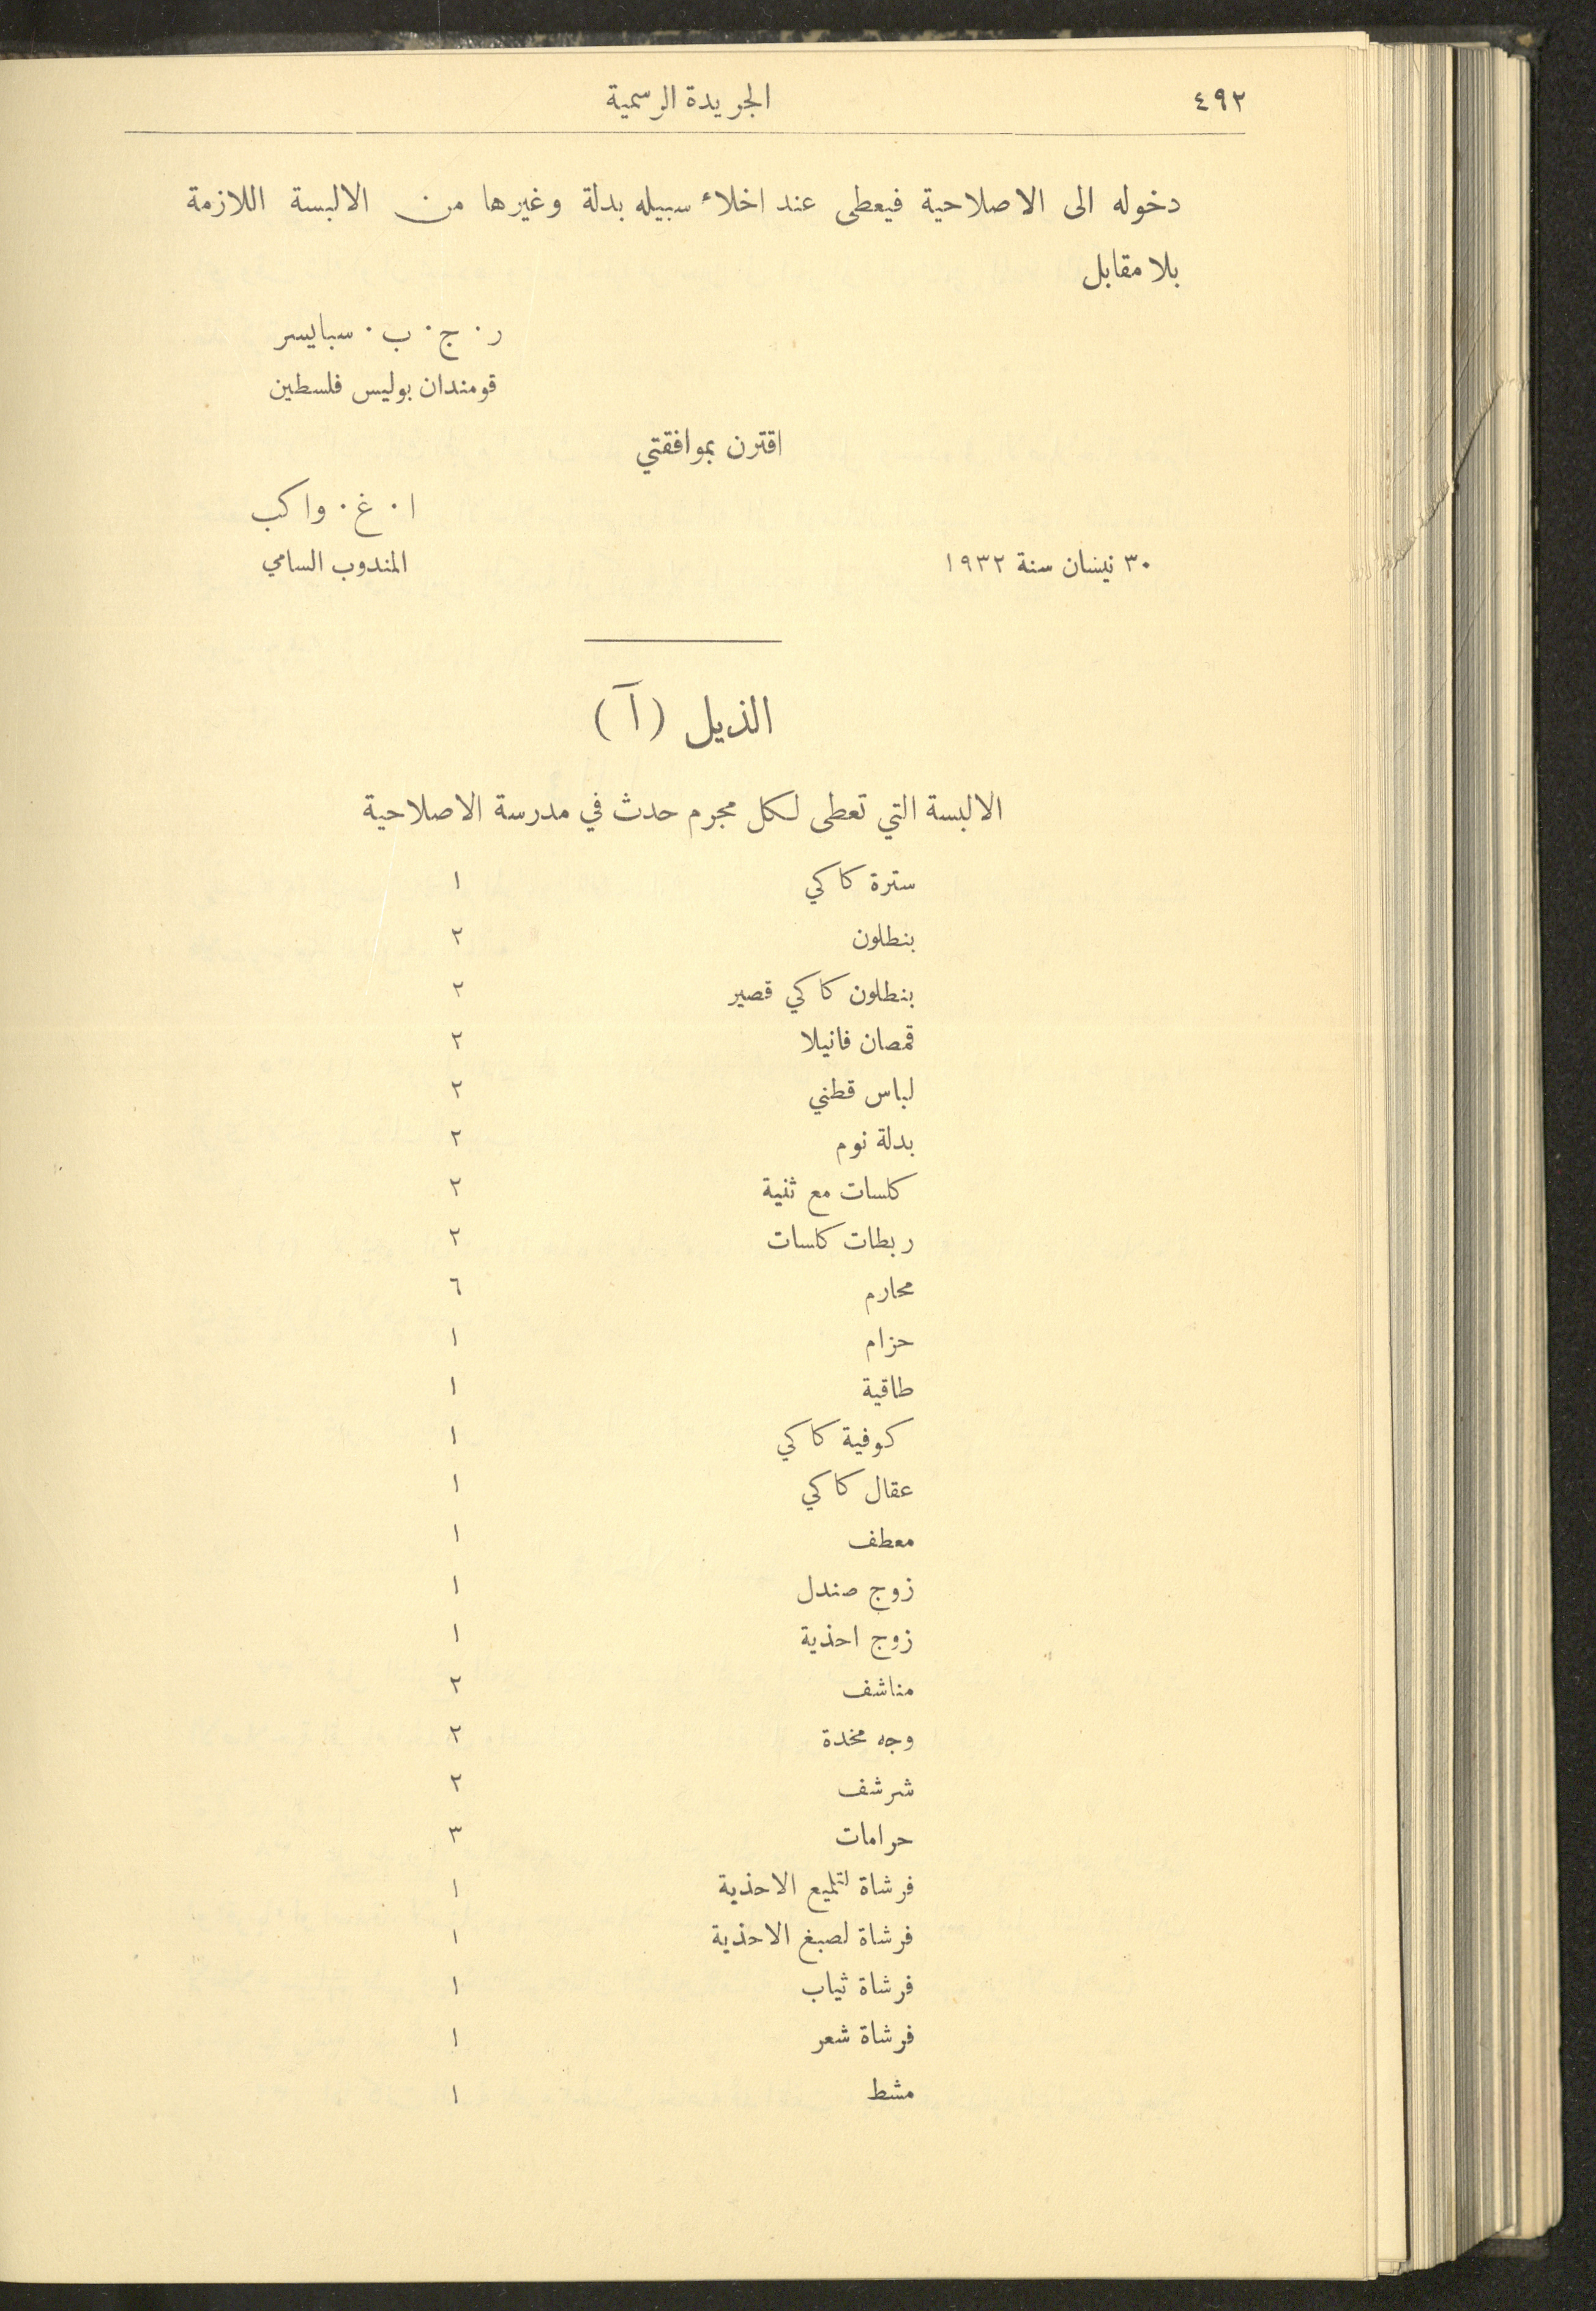 ٤٩٢ الجريدة الرسمية
دخوله الى الاصلاحية فيعطى عند اخلاء سبيله بدلة وغيرها من الالبسة اللازمة
بلا مقابل
ر. ج. ب. سبايسر
قومندان بوليس فلسطين
اقترن بموافقتي
ا. غ. واكب
٣٠ نيسان سنة ١٩٣٢ المندوب السامي
الذيل (آ)
الالبسة التي تعطى لكل مجرم حدث في مدرسة الاصلاحية
سترة كاكي ١
بنطلون ٢
بنطلون كاكي قصير ٢
قمصان فانيلا ٢
لباس قطني ٢
بدلة نوم ٢
كلسات مع ثنية ٢
ربطات كلسات ٢
محارم ٦
حزام ١
طاقية ١
كوفية كاكي ١
عقال كاكي ١
معطف ١
زوج صندل ١
زوج احذية ١
مناشف ٢
وجه مخدة ٢
شرشف ٢
حرامات ٣
فرشاة لتلميع الاحذية ١
فرشاة لصبغ الاحذية ١
فرشاة ثياب ١
فرشاة شعر ١
مشط ١